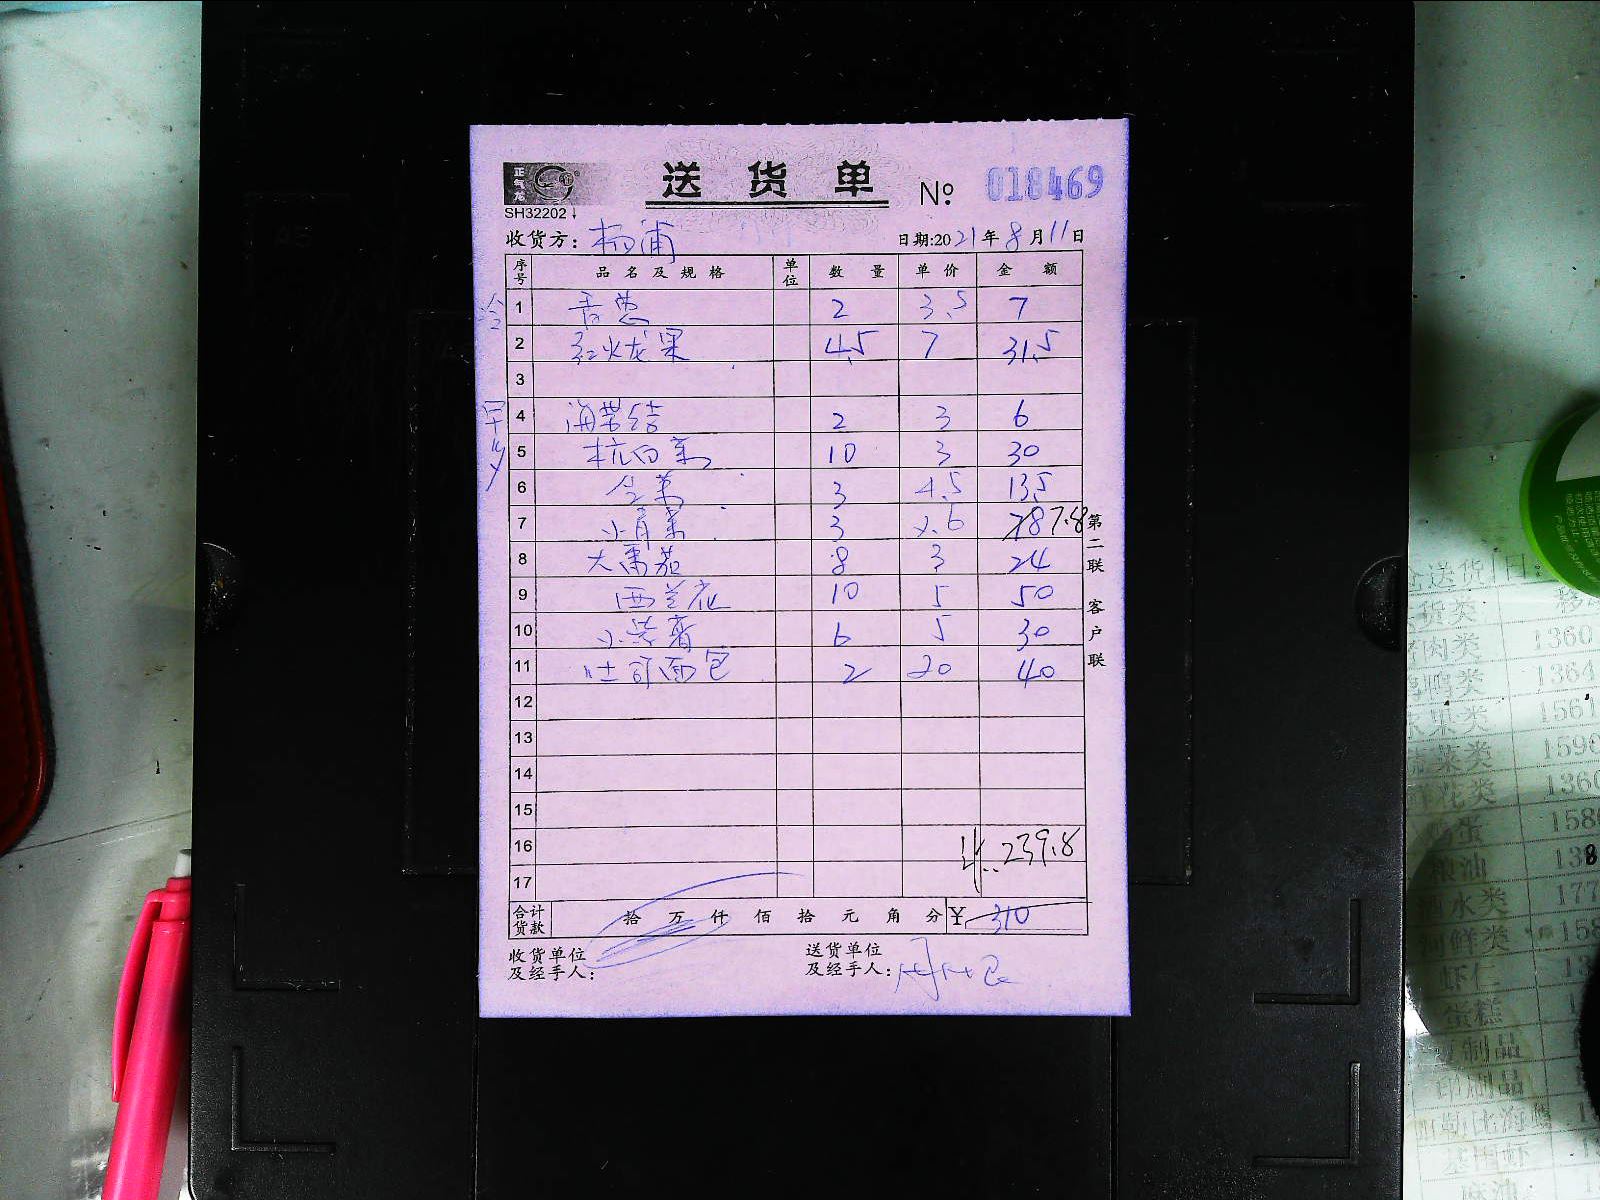 正气龙
SH32202
送货单 № 018469
收货方：杨浦 日期:2021年8月11日
序号 品名及规格 单位 数量 单价 金额
1 香葱 2 3.5 7
2 红火龙果 4.5 7 31.5
3
早岁
4 海带结 2 3 6
5 杭白菜 10 3 30
6 3 4.5 13.5
7 小青菜 3 2.6 7.8
8 大番茄 8 3 24
9 西兰花 10 5 50
10 小紫薯 6 5 30
11 吐司面包 2 20 40
12
13
14
15
16 239.8
17
合计货款 拾 万 仟 佰 拾 元 角 分 ¥ 310
收货单位及经手人：
送货单位及经手人：
第二联 客户联
送货
货类
肉类 1360
鸭类 1364
水果类 1561
蔬菜类 1590
花类 1360
蛋 1580
粮油 138
酒水类 177
鲜类 158
虾仁
蛋糕
制品
印刷品